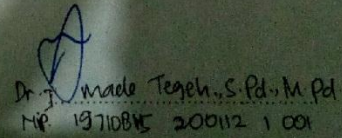 Dr. I made Tegeh, S.Pd., M.Pd
NIP. 19710815 200112 1 001